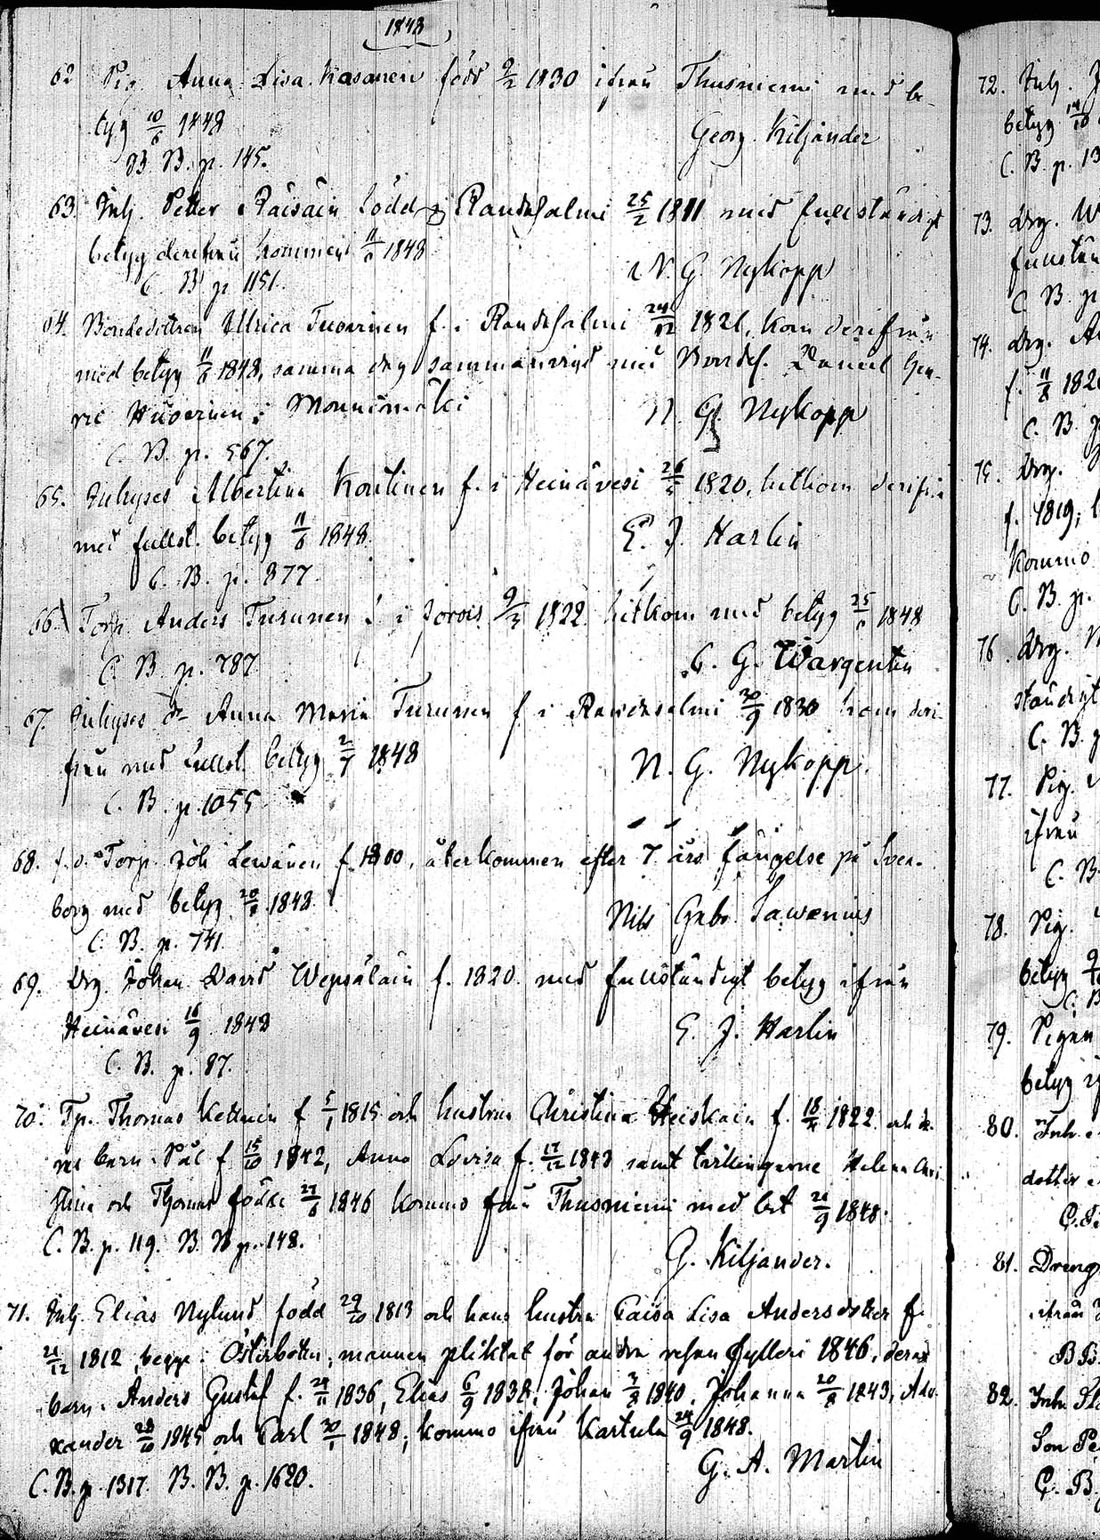 1848
62 Pig. Anna Lisa Kasanen född 9/2 1830 ifrån Thusniemi med be-
tyg 10/6 1848 Georg Kiljander
B. B. p. 145.
63. Inh. Petter Räisäin född i Randasalmi 25/2 1811 med fullständigt
betyg derifrån kommen 11/6 1848
C. B. p. 1151. N. G. Nykopp
64. Bondedottren Ulrica Tuovinen f. i Randasalmi 24/12 1826, kom derifrån
med betyg 11/6 1848, samma dag sammanvigd med Daniel Hen-
ric Huovinen i N. G. Nykopp
C. B. p. 567.
65. Inhyses Albertina Kontinen f. i Heinävesi 26/5 1820, hitkom derifrå
med fullst. betyg 11/6 1848. E. J. Harlin
C. B. p. 877.
66. Torp. Anders Turunen f. i Jorois 9/3 1822 hitkom med betyg 25/6 1848
C. B. p. 787 C. G. Wargentin
67. Inhyses Anna Maria Turunen f. i Randasalmi 20/9 1830 kom deri-
från med fullst. betyg 2/7 1848 N. G. Nykopp.
C. B. p. 1055
68. f. d. Torp. Joh Lewänen f. 1800, återkommen efter 7 års fängelse på Svea-
borg med betyg 20/8 1848. Nils Gabr. Sawenius
C. B. p. 741.
69. Drg. Johan David Wepsäläin f. 1820 med fullständigt betyg ifrån
Heinävesi 16/9 1848 E. J. Harlin
C. B. p. 87.
70. Tp. Thomas f. 5/1 1815 och hustrun Christina Heiskain f. 18/4 1822 och de-
ras barn Pål f. 15/10 1842, Anna Lovisa f. 17/12 1843 samt tvillingarne Helena Chri-
stina och Thomas födde 27/6 1846 kommo från Thusniemi med bet 24/9 1848.
C. B. p. 119. B. B. p. 148. G. Kiljander.
71. Inh. Elias Nylund född 29/10 1813 och hans hustru Caisa Lisa Andersdotter f.
21/12 1812, begge i Österbotten, mannen pliktat för andra resan fylleri 1846, deras
barn: Anders Gustaf f. 24/11 1836, Elias 6/9 1838, Johan 3/8 1840, Johanna 20/8 1843, Alex-
xander 28/10 1845 och Carl 30/1 1848, kommo ifrån Karttula 24/9 1848.
C. B. p. 1317. B. B. p. 1620. G. A. Martin
72. Inh.
betyg
C. B. p. 13
73. Drg.
C. B. p.
74. Drg.
C. B. p
75. Drg.
f. 1819,
kommo
C. B. p.
76. Drg.
ständigt
C. B. p
77. Pig.
ifrån
C. B.
78. Pig.
betyg
C. B
79. Pigan
betyg
80. Inh.
dotter
81. Dreng
ifrån
B. B.
82. Inh.
Son Pe
C. B.